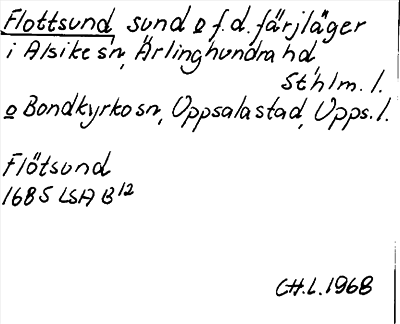 Flottsund sund o f.d. färjläger
i Alsike sn, Ärlinghundra hd,
St'hlm. l.
o Bondkyrko sn, Uppsala stad, Upps. l.
Flötsund
1685 LSA B12
CH.L. 1968